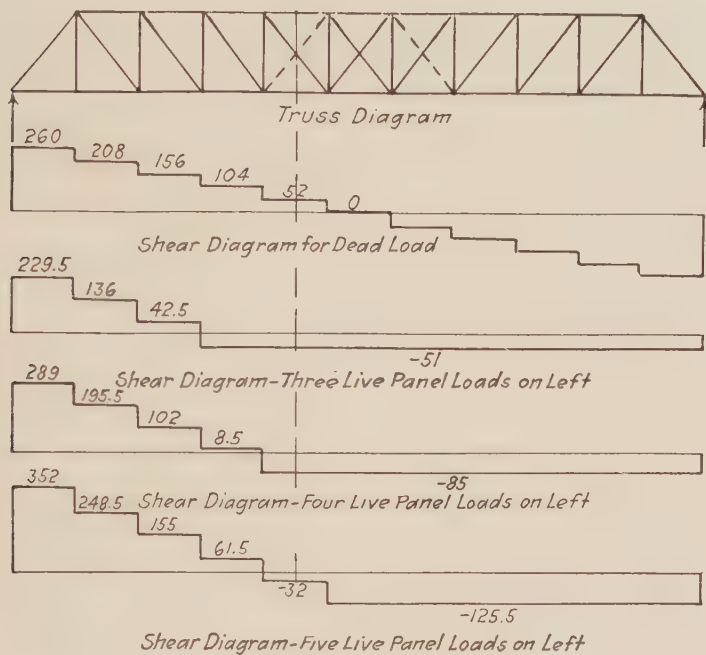 Truss Diagram
260 208 156 104 52 0
Shear Diagram for Dead Load
229.5 136 42.5
-51
Shear Diagram-Three Live Panel Loads on Left
289 195.5 102 8.5
-85
Shear Diagram-Four Live Panel Loads on Left
352 248.5 155 61.5
-32
-125.5
Shear Diagram-Five Live Panel Loads on Left